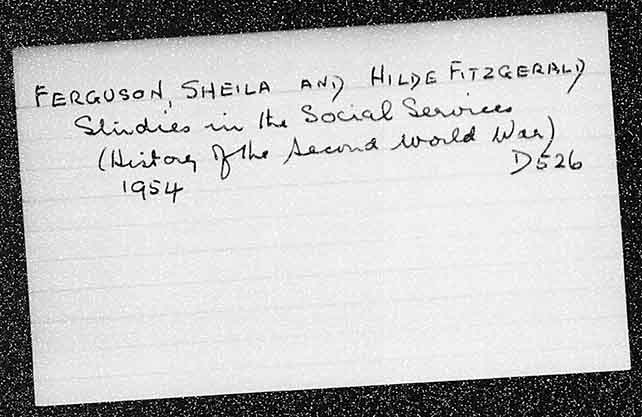 FERGUSON, SHEILA AND HILDE FITZGERALD
Studies in the Social Services
(History of the Second World War)
1954 D526